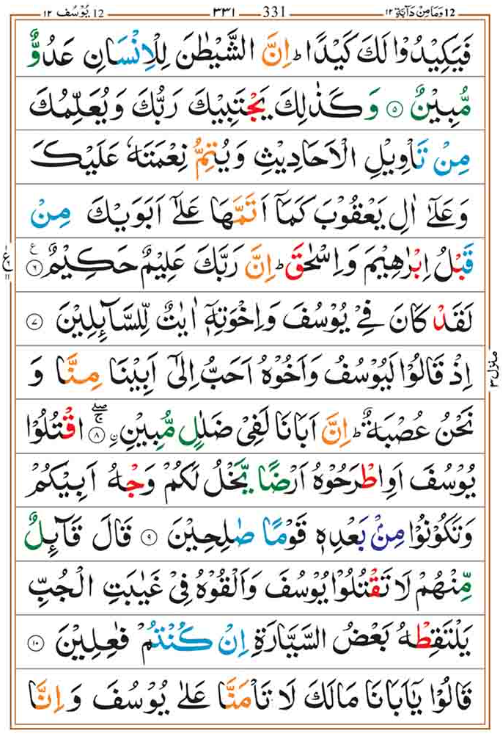 12 وَمَا مِنْ دَآبَّةٍ ١٢ ٣٣١ 331 12 يُوْسُف ١٢
فَيَكِيْدُوْا لَكَ كَيْدًا ؕ اِنَّ الشَّيْطٰنَ لِلْاِنْسَانِ عَدُوٌّ
مُّبِيْنٌ ۝۵ وَكَذٰلِكَ يَجْتَبِيْكَ رَبُّكَ وَيُعَلِّمُكَ
مِنْ تَاْوِيْلِ الْاَحَادِيْثِ وَيُتِمُّ نِعْمَتَهٗ عَلَيْكَ
وَعَلٰۤى اٰلِ يَعْقُوْبَ كَمَاۤ اَتَمَّهَا عَلٰۤى اَبَوَيْكَ مِنْ
قَبْلُ اِبْرٰهِيْمَ وَاِسْحٰقَ ؕ اِنَّ رَبَّكَ عَلِيْمٌ حَكِيْمٌ ۝۶ ع
لَقَدْ كَانَ فِيْ يُوْسُفَ وَاِخْوَتِهٖۤ اٰيٰتٌ لِّلسَّآئِلِيْنَ ۝۷
اِذْ قَالُوْا لَيُوْسُفُ وَاَخُوْهُ اَحَبُّ اِلٰۤى اَبِيْنَا مِنَّا وَ
منزل ٣
نَحْنُ عُصْبَةٌ ؕ اِنَّ اَبَانَا لَفِيْ ضَلٰلٍ مُّبِيْنِ ۝۸ ۣاقْتُلُوْا
يُوْسُفَ اَوِ اطْرَحُوْهُ اَرْضًا يَّخْلُ لَكُمْ وَجْهُ اَبِيْكُمْ
وَتَكُوْنُوْا مِنْۢ بَعْدِهٖ قَوْمًا صٰلِحِيْنَ ۝۹ قَالَ قَآئِلٌ
مِّنْهُمْ لَا تَقْتُلُوْا يُوْسُفَ وَاَلْقُوْهُ فِيْ غَيٰبَتِ الْجُبِّ
يَلْتَقِطْهُ بَعْضُ السَّيَّارَةِ اِنْ كُنْتُمْ فٰعِلِيْنَ ۝۱۰
قَالُوْا يٰۤاَبَانَا مَا لَكَ لَا تَاْمَنَّا عَلٰى يُوْسُفَ وَاِنَّا